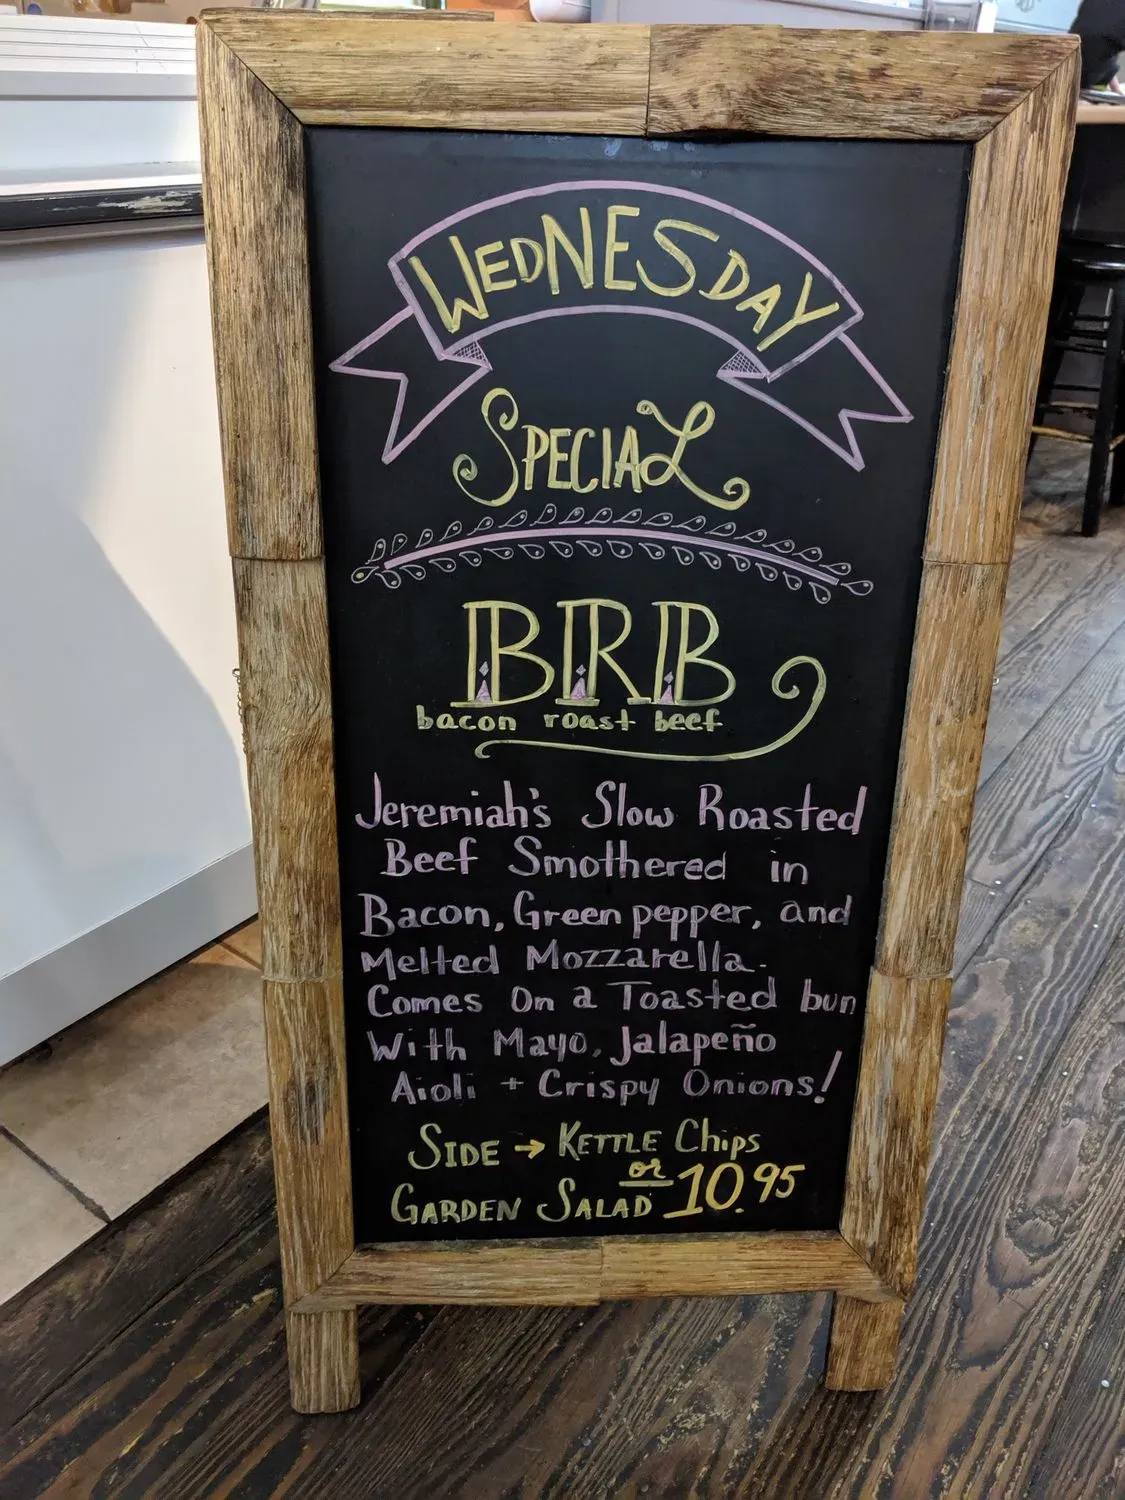 WEDNESDAY
SPECIAL
BRB
bacon roast beef
Jeremiah's Slow Roasted
Beef Smothered in
Bacon, Green pepper, and
Melted Mozzarella.
Comes On a Toasted bun
With Mayo, Jalapeño
Aioli + Crispy Onions!
SIDE → KETTLE Chips
or
GARDEN SALAD 10.95